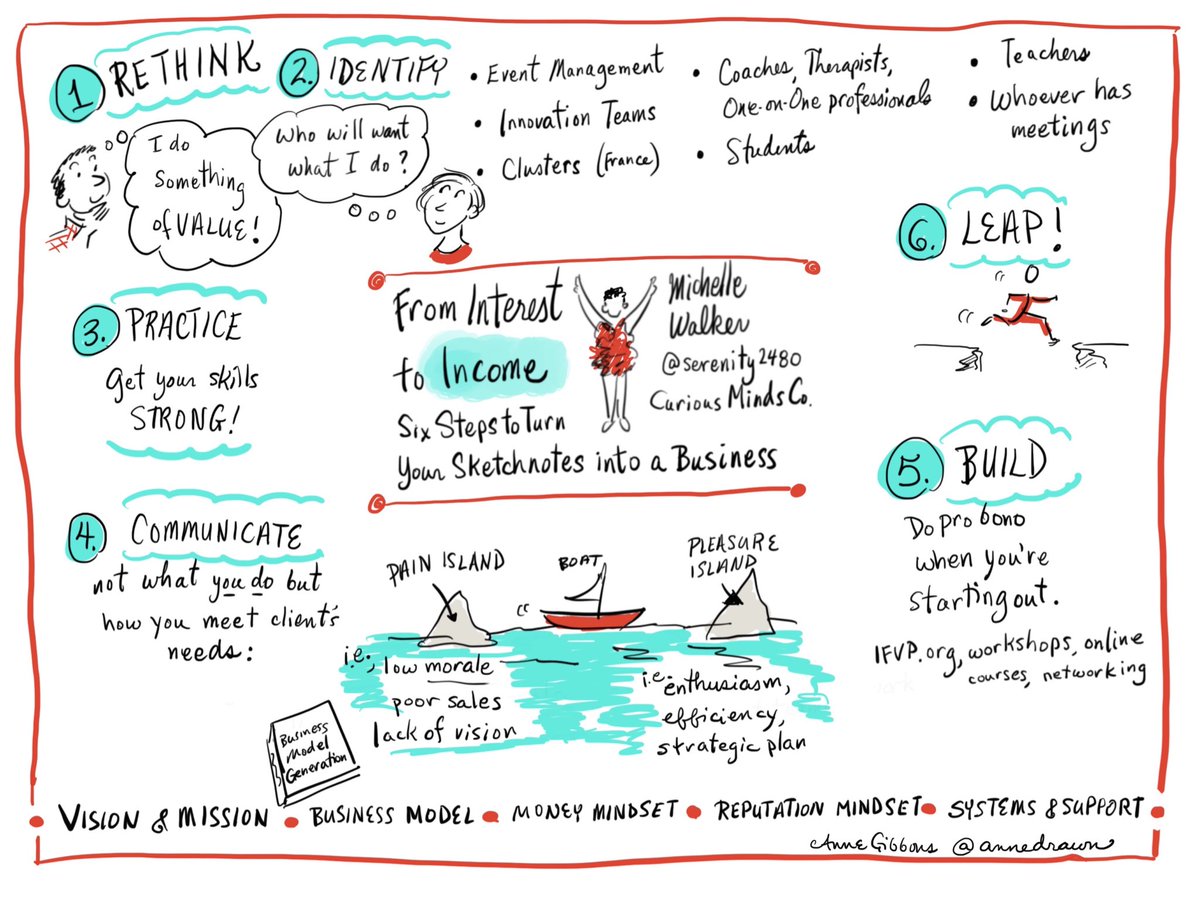 1 RETHINK
I do
something
of VALUE!
2. IDENTIFY
Who will want
what I do?
• Event Management
• Innovation Teams
• Clusters (France)
• Coaches, Therapists,
One-on-One professionals
• Students
• Teachers
• Whoever has
meetings
From Interest
to Income
Six Steps to Turn
Your Sketchnotes into a Business
Michelle
Walker
@serenity2480
Curious Minds Co.
3. PRACTICE
Get your skills
STRONG!
4. COMMUNICATE
not what you do but
how you meet client's
needs:
PAIN ISLAND
BOAT
PLEASURE
ISLAND
i.e.,
low morale
poor sales
lack of vision
i.e.
enthusiasm,
efficiency,
strategic plan
Business
Model
Generation
5. BUILD
Do pro bono
when you're
starting out.
IFVP.org, workshops, online
courses, networking
6. LEAP!
VISION & MISSION • BUSINESS MODEL • MONEY MINDSET • REPUTATION MINDSET • SYSTEMS & SUPPORT
Anne Gibbons @annedrawn